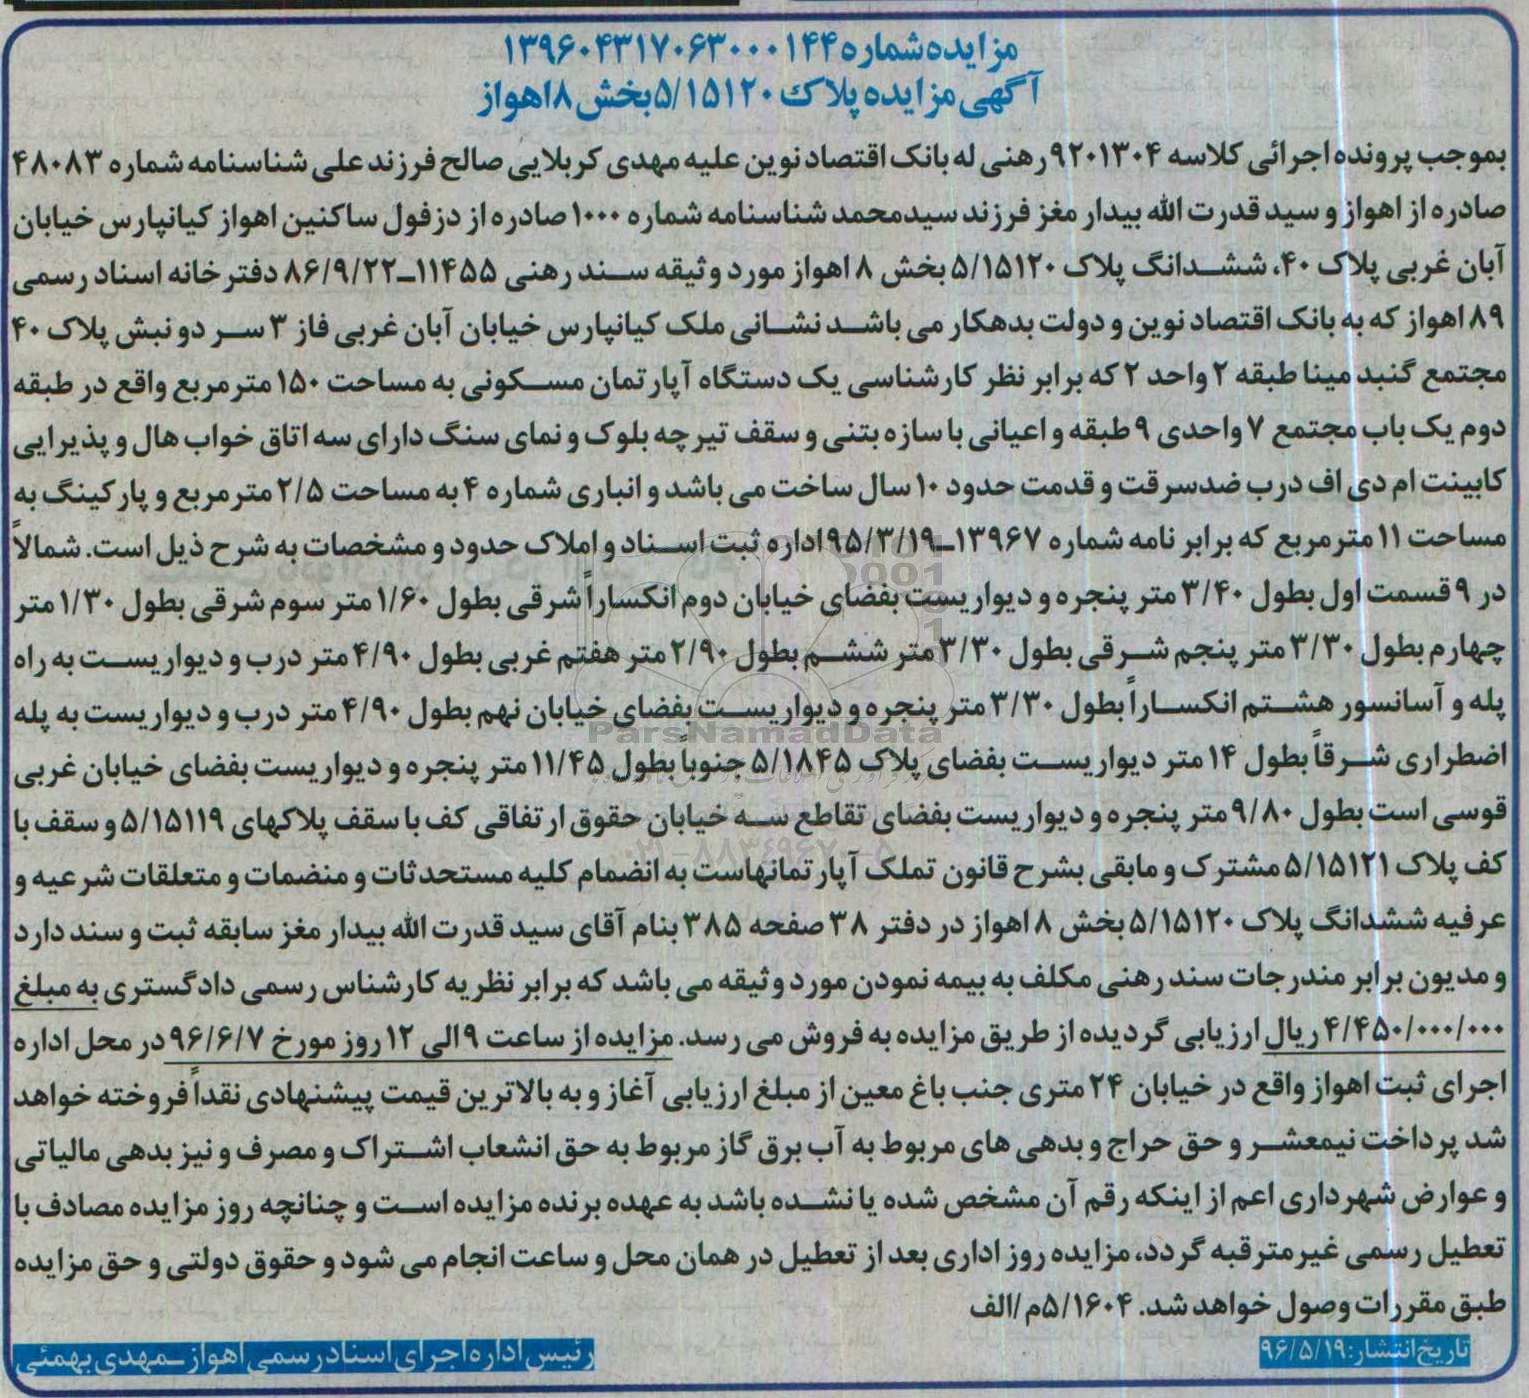 مزایده شماره ۱۳۹۶۰۴۳۱۷۰۶۳۰۰۰۱۴۴
آگهی مزایده پلاک ۵/۱۵۱۲۰ بخش ۸ اهواز
بموجب پرونده اجرائی کلاسه ۹۲۰۱۳۰۴ رهنی له بانک اقتصاد نوین علیه مهدی کربلایی صالح فرزند علی شناسنامه شماره ۴۸۰۸۳
صادره از اهواز و سید قدرت الله بیدار مغز فرزند سیدمحمد شناسنامه شماره ۱۰۰۰ صادره از دزفول ساکنین اهواز کیانپارس خیابان
آبان غربی پلاک ۴۰، ششدانگ پلاک ۵/۱۵۱۲۰ بخش ۸ اهواز مورد وثیقه سند رهنی ۱۱۴۵۵ـ۸۶/۹/۲۲ دفترخانه اسناد رسمی
۸۹ اهواز که به بانک اقتصاد نوین و دولت بدهکار می باشد نشانی ملک کیانپارس خیابان آبان غربی فاز ۳ سر دو نبش پلاک ۴۰
مجتمع گنبد مینا طبقه ۲ واحد ۲ که برابر نظر کارشناسی یک دستگاه آپارتمان مسکونی به مساحت ۱۵۰ مترمربع واقع در طبقه
دوم یک باب مجتمع ۷ واحدی ۹ طبقه و اعیانی با سازه بتنی و سقف تیرچه بلوک و نمای سنگ دارای سه اتاق خواب هال و پذیرایی
کابینت ام دی اف درب ضدسرقت و قدمت حدود ۱۰ سال ساخت می باشد و انباری شماره ۴ به مساحت ۲/۵ مترمربع و پارکینگ به
مساحت ۱۱ مترمربع که برابر نامه شماره ۱۳۹۶۷ـ۹۵/۳/۱۹ اداره ثبت اسناد و املاک حدود و مشخصات به شرح ذیل است. شمالاً
در ۹ قسمت اول بطول ۳/۴۰ متر پنجره و دیواریست بفضای خیابان دوم انکساراً شرقی بطول ۱/۶۰ متر سوم شرقی بطول ۱/۳۰ متر
چهارم بطول ۳/۳۰ متر پنجم شرقی بطول ۳/۳۰ متر ششم بطول ۲/۹۰ متر هفتم غربی بطول ۴/۹۰ متر درب و دیواریست به راه
پله و آسانسور هشتم انکساراً بطول ۳/۳۰ متر پنجره و دیواریست بفضای خیابان نهم بطول ۴/۹۰ متر درب و دیواریست به پله
اضطراری شرقاً بطول ۱۴ متر دیواریست بفضای پلاک ۵/۱۸۴۵ جنوباً بطول ۱۱/۴۵ متر پنجره و دیواریست بفضای خیابان غربی
قوسی است بطول ۹/۸۰ متر پنجره و دیواریست بفضای تقاطع سه خیابان حقوق ارتفاقی کف با سقف پلاکهای ۵/۱۵۱۱۹ و سقف با
کف پلاک ۵/۱۵۱۲۱ مشترک و مابقی بشرح قانون تملک آپارتمانهاست به انضمام کلیه مستحدثات و منضمات و متعلقات شرعیه و
عرفیه ششدانگ پلاک ۵/۱۵۱۲۰ بخش ۸ اهواز در دفتر ۳۸ صفحه ۳۸۵ بنام آقای سید قدرت الله بیدار مغز سابقه ثبت و سند دارد
و مدیون برابر مندرجات سند رهنی مکلف به بیمه نمودن مورد وثیقه می باشد که برابر نظریه کارشناس رسمی دادگستری به مبلغ
۴/۴۵۰/۰۰۰/۰۰۰ ریال ارزیابی گردیده از طریق مزایده به فروش می رسد. مزایده از ساعت ۹ الی ۱۲ روز مورخ ۹۶/۶/۷ در محل اداره
اجرای ثبت اهواز واقع در خیابان ۲۴ متری جنب باغ معین از مبلغ ارزیابی آغاز و به بالاترین قیمت پیشنهادی نقداً فروخته خواهد
شد پرداخت نیمعشر و حق حراج و بدهی های مربوط به آب برق گاز مربوط به حق انشعاب اشتراک و مصرف و نیز بدهی مالیاتی
و عوارض شهرداری اعم از اینکه رقم آن مشخص شده یا نشده باشد به عهده برنده مزایده است و چنانچه روز مزایده مصادف با
تعطیل رسمی غیرمترقبه گردد، مزایده روز اداری بعد از تعطیل در همان محل و ساعت انجام می شود و حقوق دولتی و حق مزایده
طبق مقررات وصول خواهد شد. ۵/۱۶۰۴م/الف
تاریخ انتشار: ۹۶/۵/۱۹
رئیس اداره اجرای اسناد رسمی اهواز ـ مهدی بهمئی
ParsNamadData